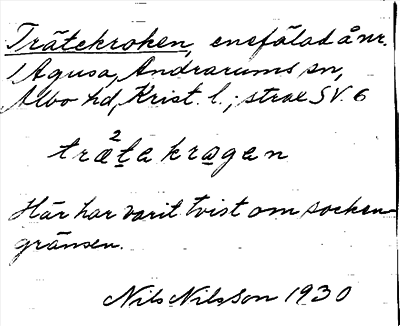 Trätekroken, enefälad å nr.
1 Agusa, Andrarums sn,
Albo hd, Krist. l.; strax SV. 6
2
trætakragan
Här har varit tvist om socken-
gränsen.
Nils Nilsson 1930